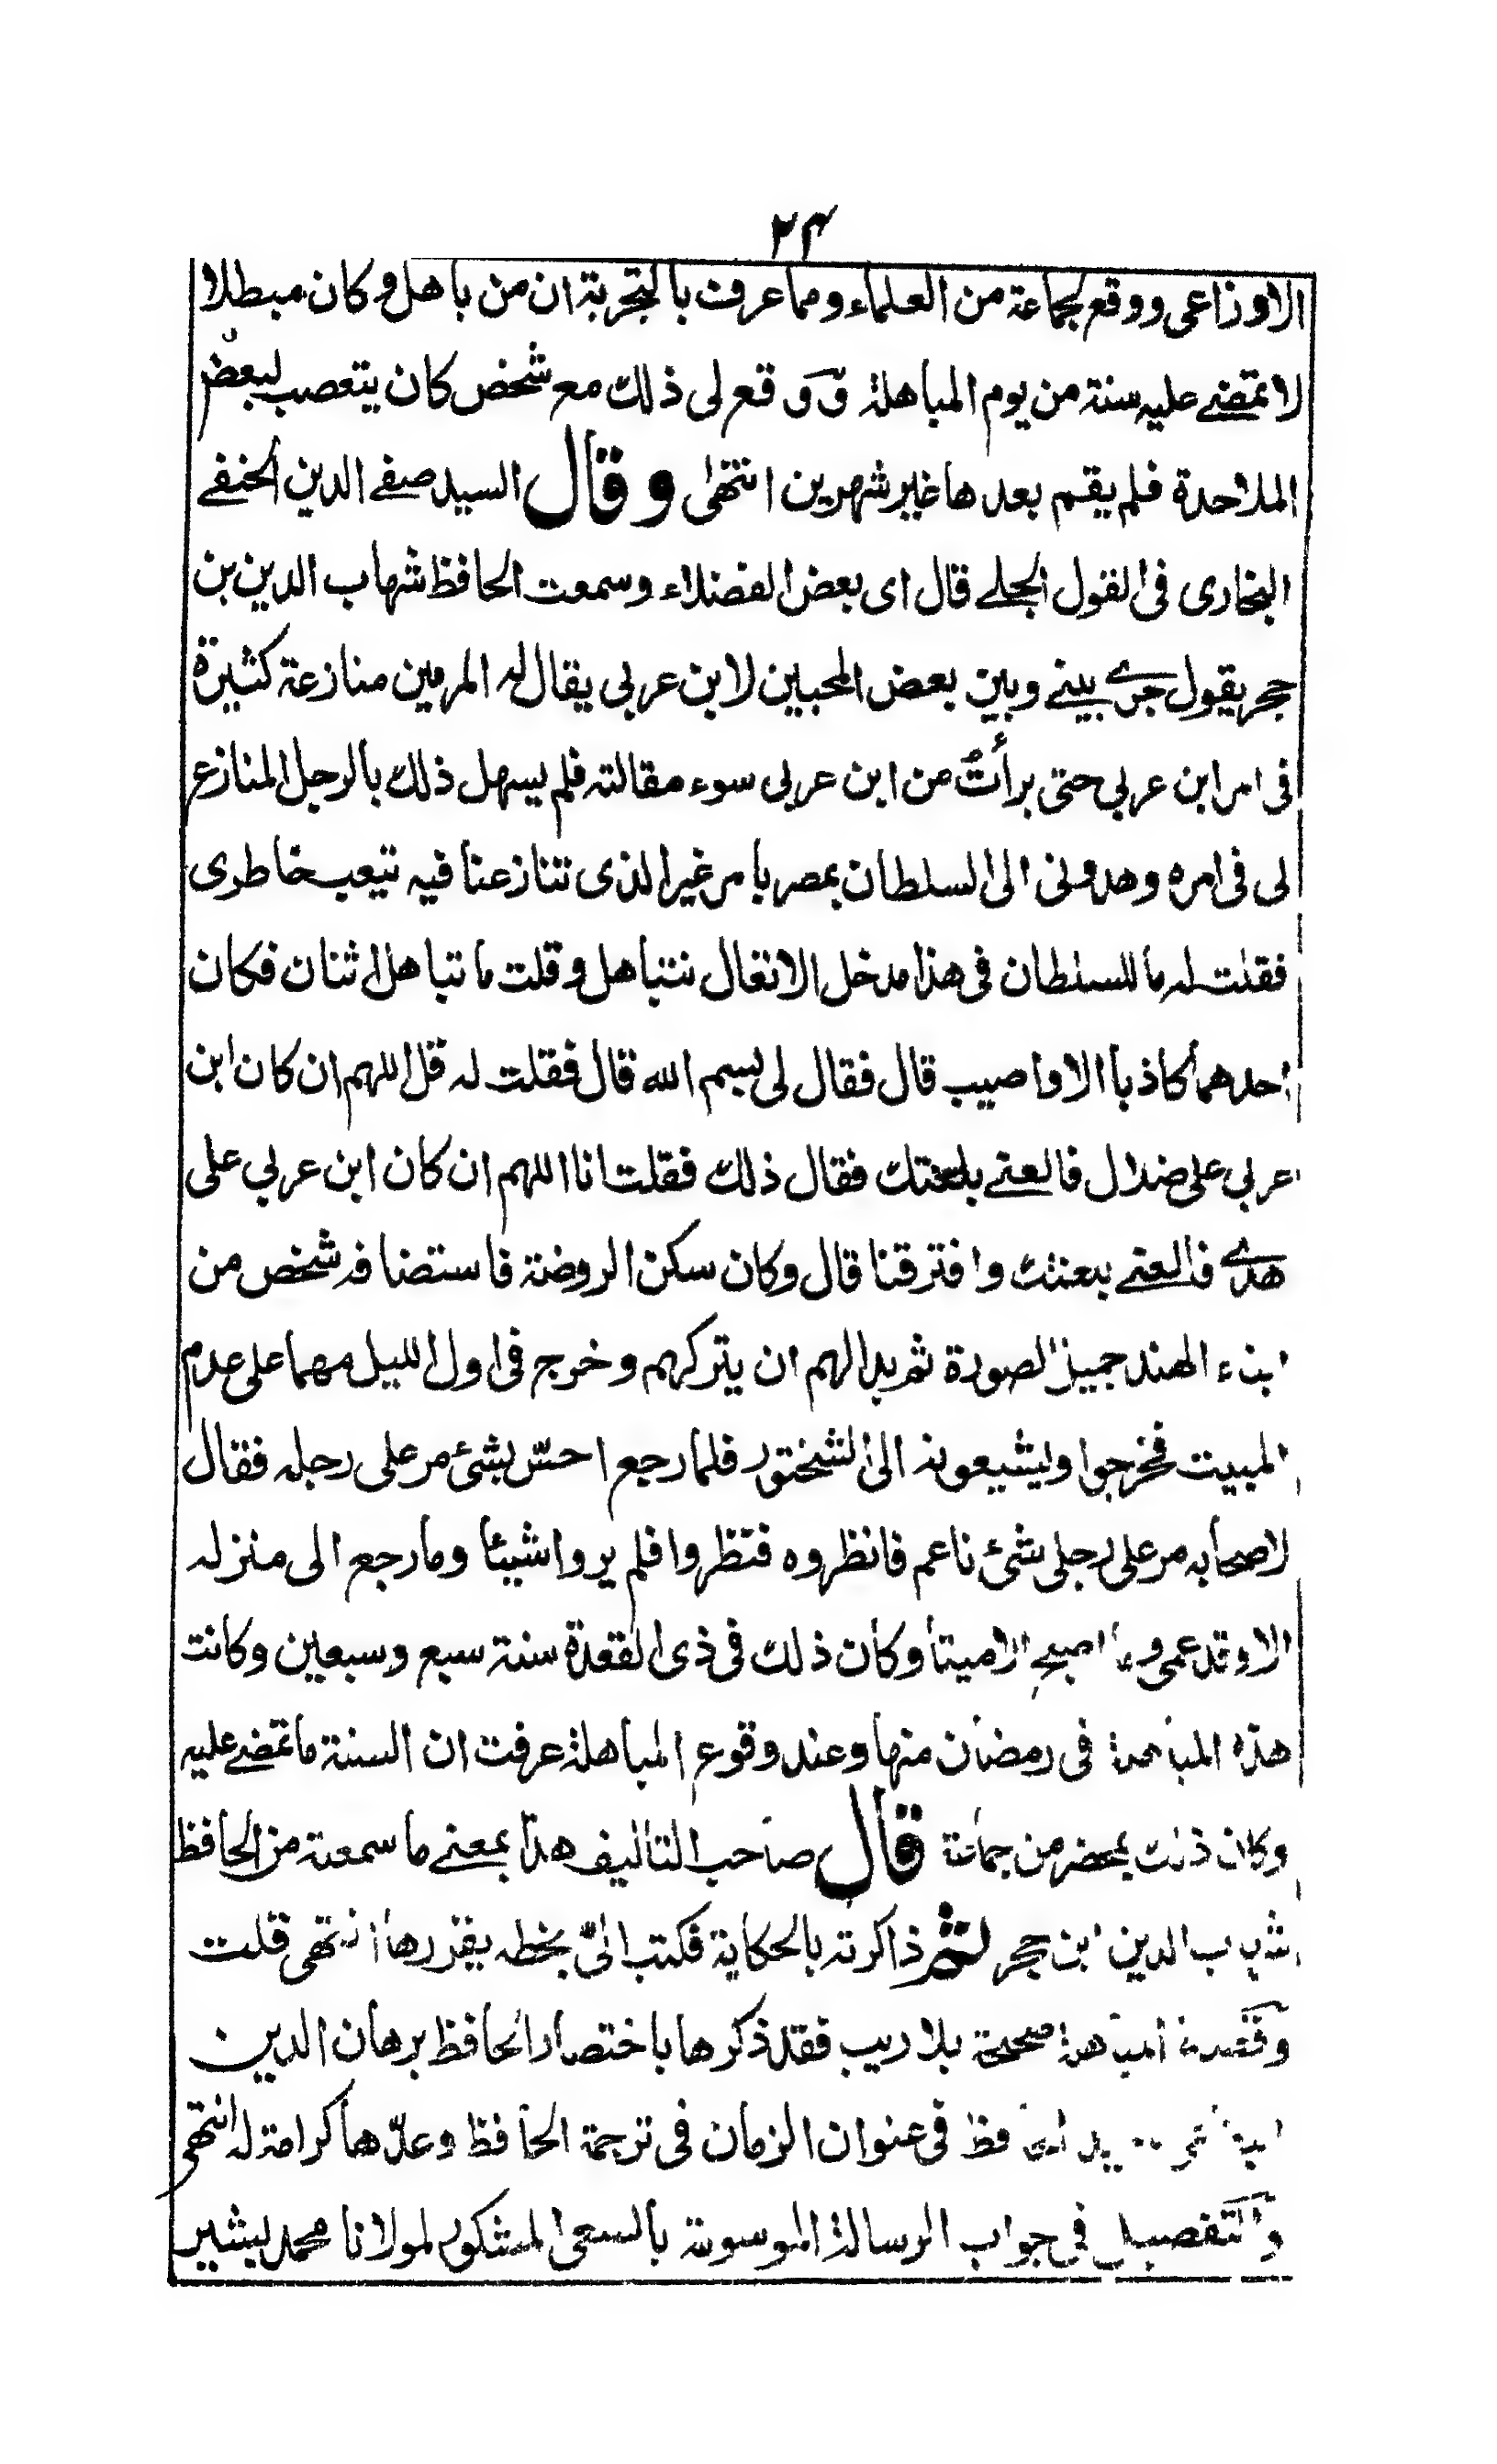 ۲۴
الاوزاعى ووقع لجماعة من العلماء ومما عرفت بالتجربة ان من باهل وكان مبطلا
لا تمضے عليه سنة من يوم المباهلة ووقع لى ذلك مع شخص كان يتعصب لبعض
الملاحدة فلم يقم بعدها غير شهرين انتهى وقال السيد صفے الدين الحنفے
البخارى فى القول الجلے قال اى بعض الفضلاء وسمعت الحافظ شهاب الدين بن
حجر يقول جرے بينے وبين بعض المحبين لابن عربى يقال له المرمين منازعة كثيرة
فى امر ابن عربي حتى برأت من ابن عربى سوء مقالته فلم يسهل ذلك بالرجل المنازع
لى فى امره وهدونى الى السلطان بمصر بامر غير الذى تنازعنا فيه تيعب خاطرى
فقلت له ما للسلطان فى هذا مدخل الا تغال نتباهل وقلت ما تباهل اثنان فكان
احدهما كاذبا الا واصيب قال فقال لى بسم الله قال فقلت له قل اللهم ان كان ابن
عربي على ضلال فالعنے بلعنتك فقال ذلك فقلت انا اللهم ان كان ابن عربي على
هدے فالعنے بعنتك وافترقنا قال وكان سكن الروضة فاستضافه شخص من
ابناء الهند جميل الصورة ثم بدا لهم ان يتركهم وخرج فى اول الليل مهما على عدم
المبيت فخرجوا ويشيعونه الى الشختور فلما رجع احسّ بشئ مر على رجله فقال
لاصحابه مر على رجلى شئ ناعم فانظروه فنظروا فلم يروا شيئا وما رجع الى منزله
الا وقد عمى وما اصبح الا ميتا وكان ذلك فى ذى القعدة سنة سبع وسبعين وكانت
هذه المباهلة فى رمضان منها وعند وقوع المباهلة عرفت ان السنة ما تمضے عليه
وكان ذلك بمحضر من جماعة قال صاحب التاليف هذا بمعنے ما سمعته من الحافظ
شهاب الدين ابن حجر ثم ذاكرته بالحكاية فكتب الىّ بخطه يقررها انتهى قلت
وقصة المباهلة صحيحة بلا ريب فقد ذكرها باختصار الحافظ برهان الدين
فى عنوان الزمان فى ترجمة الحافظ وعدّها كرامة له انتهى
والتفصيل فى جواب الرسالة الموسومة بالسعى المشكور لمولانا محمد بشير